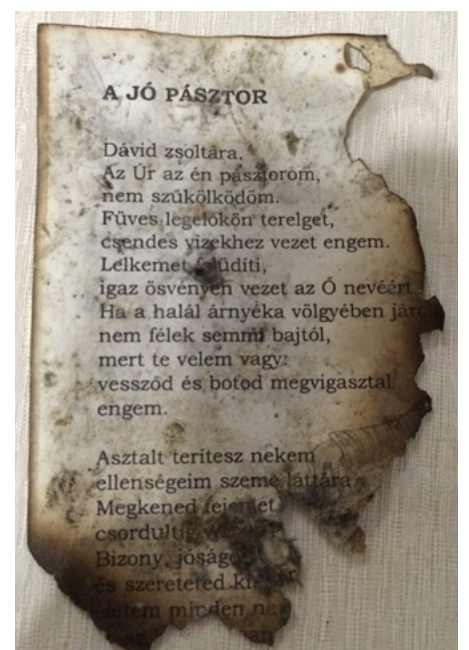 A JÓ PÁSZTOR
Dávid zsoltára.
Az Úr az én pásztorom,
nem szűkölködöm.
Füves legelőkön terelget,
csendes vizekhez vezet engem.
Lelkemet
igaz ösvényen vezet az Ő nevéért
Ha a halál árnyéka völgyében
nem félek semmi bajtól,
mert te velem vagy:
vessződ és botod megvigasztal
engem.
Asztalt terítesz nekem
ellenségeim szeme láttára
Megkened fejemet
csordultig
Bizony,
és szereteted
életem minden